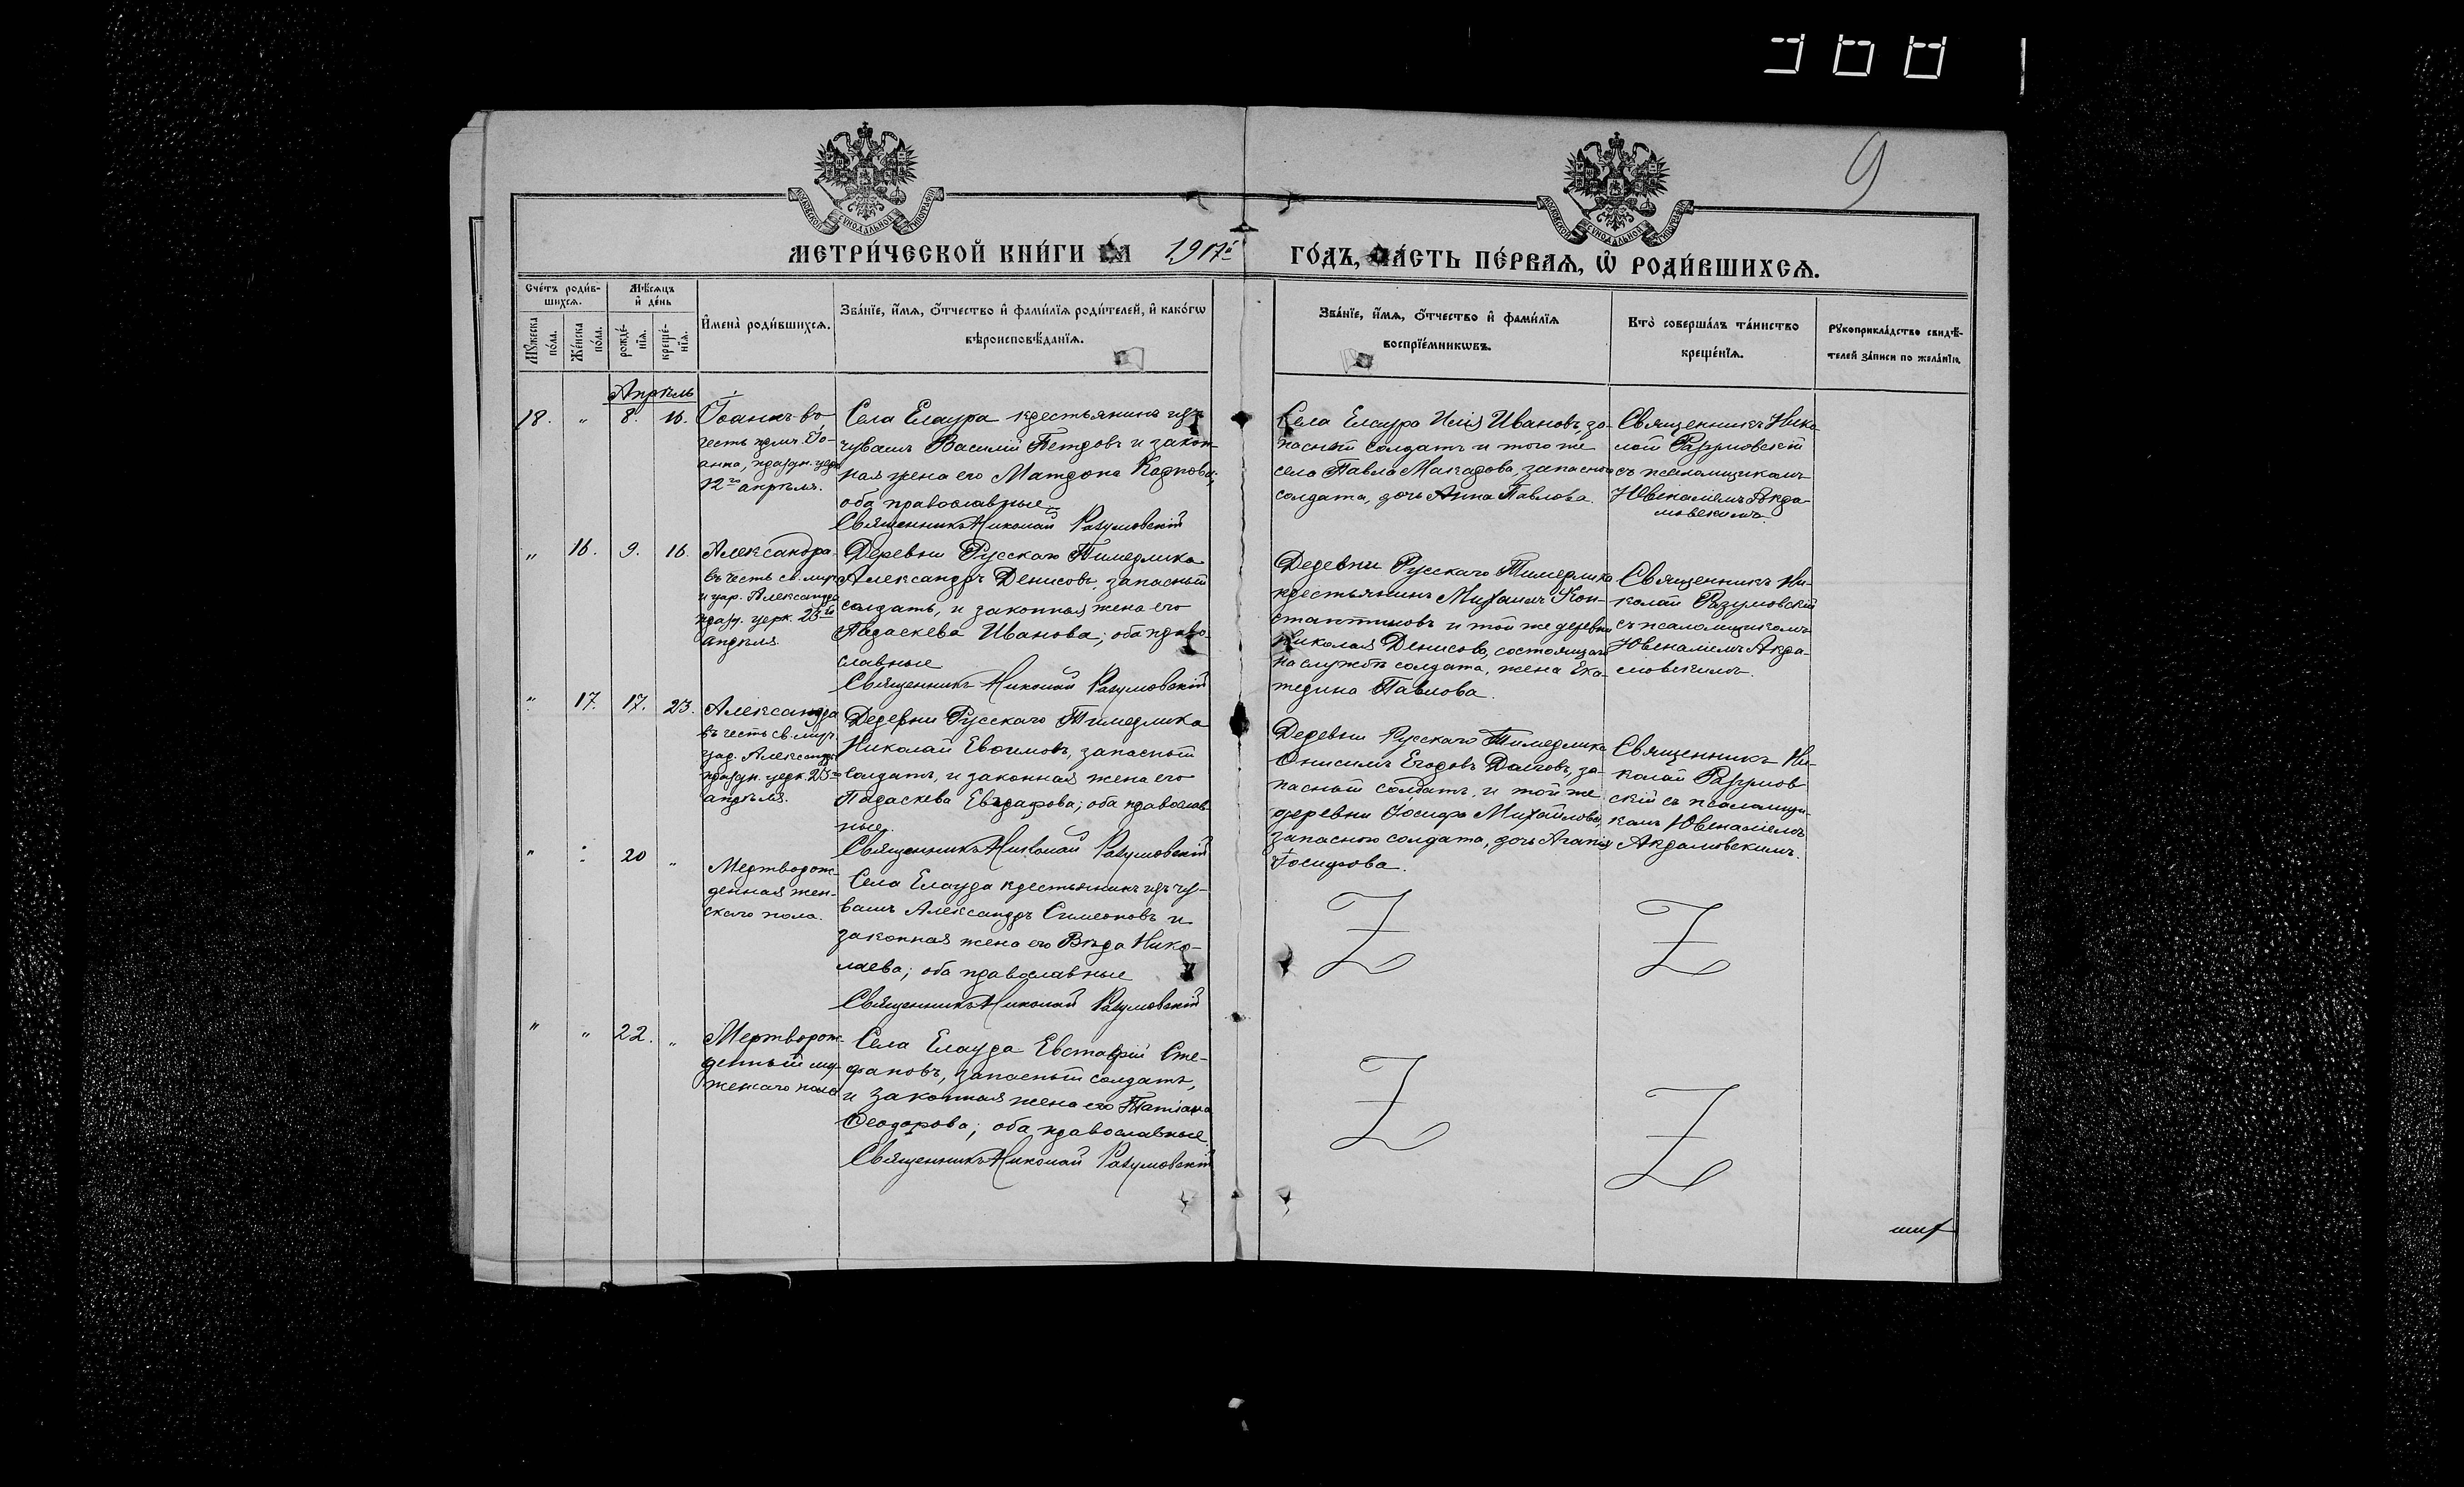 9
МОСКОВСКОЙ СѴНОДАЛЬНОЙ ТИПОГРАФІИ
МОСКОВСКОЙ СѴНОДАЛЬНОЙ ТИПОГРАФІИ
МЕТРИ́ЧЕСКОЙ КНИ́ГИ НА 1917й ГО́ДЪ, ЧА́СТЬ ПЕ́РВАѦ, Ѡ҆ РОДИ́ВШИХСѦ.
Сче́тъ роди́в-
шихсѧ.
Мꙋ́жеска по́ла.
Же́нска по́ла.
Мѣ́сѧцъ и҆ де́нь
рожде́-
нїѧ.
креще́-
нїѧ.
И҆мена̀ роди́вшихсѧ.
Зва́нїе, и҆́мѧ, ѻ҆́тчество и҆ фами́лїѧ роди́телей, и҆ како́гѡ
вѣроисповѣ́данїѧ.
Зва́нїе, и҆́мѧ, ѻ҆́тчество и҆ фами́лїѧ
воспрїе́мникѡвъ.
Кто̀ соверша́лъ та́инство
креще́нїѧ.
Рꙋкоприкла́дство свидѣ́-
телей за́писи по жела́нїю.
Апрѣль
18. „ 8. 16.
Іоаннъ во
честь прмч. Іо-
анна, праздн. церк.
12го апрѣля.
Села Елаура крестьянинъ изъ
чувашъ Василій Петровъ и закон-
ная жена его Матрона Карпова;
оба православные
Священникъ Николай Разумовскій
Села Елаура Илія Ивановъ, за-
пасный солдатъ и того же
села Павла Макарова, запаснаго
солдата, дочь Анна Павлова.
Священникъ Нико-
лай Разумовскій
съ псаломщикомъ
Ювеналіемъ Акра-
мовскимъ.
„ 16. 9. 16.
Александра
въ честь св. муч.
и цар. Александры
празд. церк. 23го
апрѣля.
Деревни Русскаго Тимерлика
Александръ Денисовъ, запасный
солдатъ, и законная жена его
Параскева Иванова; оба право-
славные
Священникъ Николай Разумовскій
Деревни Русскаго Тимерлика
крестьянинъ Михаилъ Кон-
стантиновъ и той же деревни
Николая Денисова, состоящаго
на службѣ солдата, жена Ека-
терина Павлова.
Священникъ Ни-
колай Разумовскій
съ псаломщикомъ
Ювеналіемъ Акра-
мовскимъ.
„ 17. 17. 23.
Александра
въ честь св. муч.
цар. Александры
праздн. церк. 23го
апрѣля.
Деревни Русскаго Тимерлика
Николай Евѳимовъ, запасный
солдатъ, и законная жена его
Параскева Евграфова; оба православ-
ные.
Священникъ Николай Разумовскій
Деревни Русскаго Тимерлика
Онисимъ Егоровъ Долговъ, за-
пасный солдатъ, и той же
деревни Іосифа Михайлова,
запаснаго солдата, дочь Агапія
Іосифова.
Священникъ Ни-
колай Разумов-
скій съ псаломщи-
комъ Ювеналіемъ
Акрамовскимъ.
„ „ 20 „
Мертворож-
денная жен-
скаго пола.
Села Елаура крестьянинъ изъ чу-
вашъ Александръ Симеоновъ и
законная жена его Вѣра Нико-
лаева; оба православные
Священникъ Николай Разумовскій
„ „ 22. „
Мертворож-
денный му-
жескаго пола
Села Елаура Евстафій Сте-
фановъ, запасный солдатъ,
и законная жена его Татіана
Ѳеодорова; оба православные.
Священникъ Николай Разумовскій